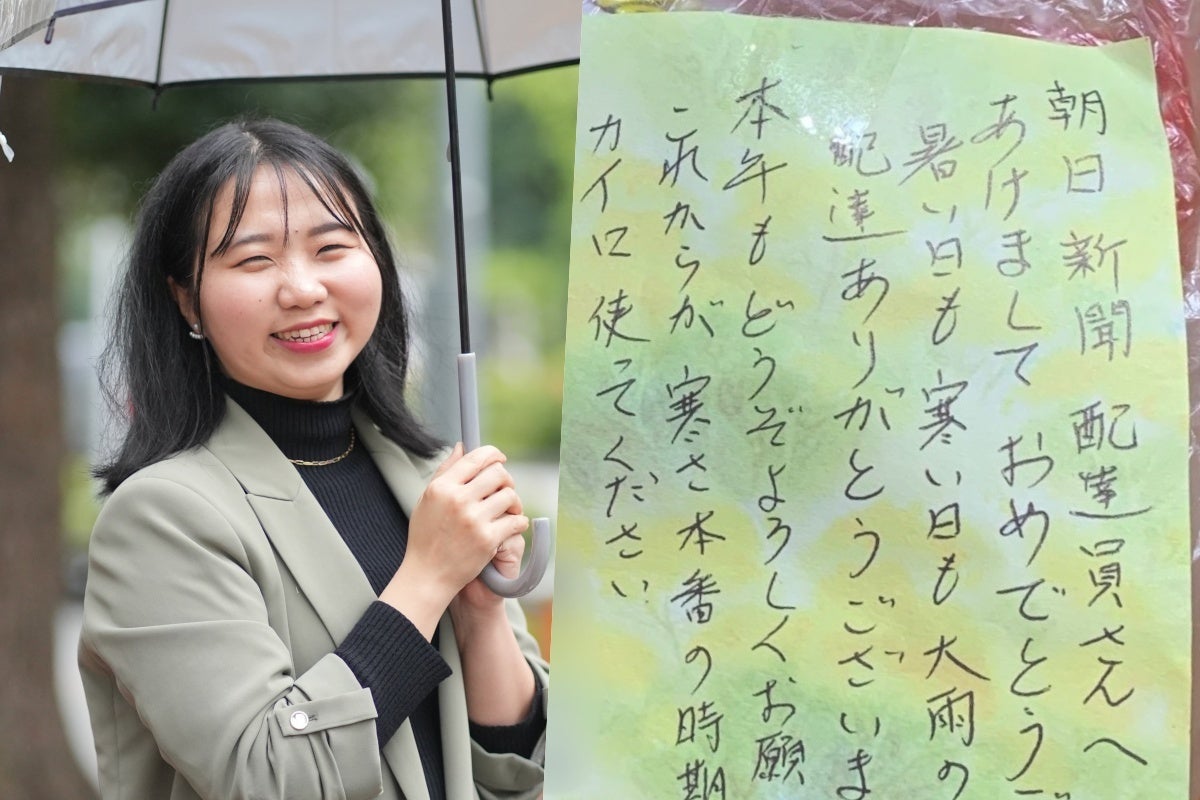 朝日新聞 配達員さんへ
あけまして おめでとうご
暑い日も 寒い日も 大雨の
配達ありがとうございま
本年もどうぞよろしくお願
これからが 寒さ本番の時期
カイロ 使ってください